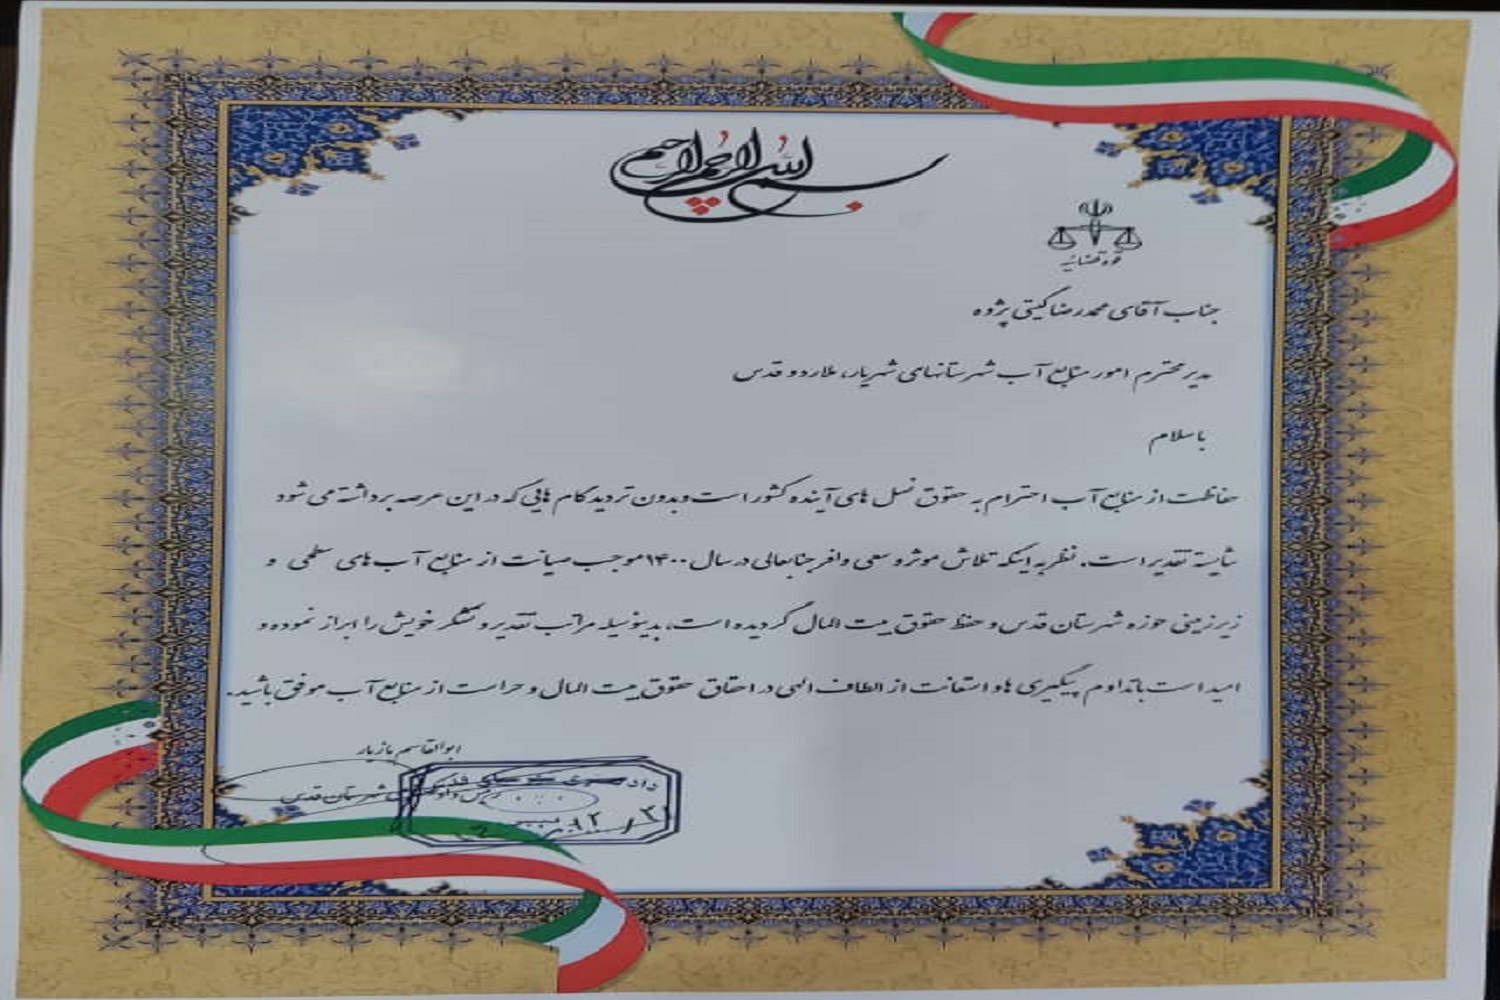 بسم الله الرحمن الرحیم
قوه قضائیه
جناب آقای محمدرضا گیتی پژوه
مدیر محترم امور منابع آب شهرستانهای شهریار، ملارد و قدس
با سلام
حفاظت از منابع آب احترام به حقوق نسل های آینده کشور است و بدون تردید گام هایی که در این عرصه برداشته می شود
شایسته تقدیر است. نظر به اینکه تلاش موثر و سعی وافر جنابعالی در سال ۱۴۰۰ موجب صیانت از منابع آب های سطحی و
زیرزمینی حوزه شهرستان قدس و حفظ حقوق بیت المال گردیده است، بدینوسیله مراتب تقدیر و تشکر خویش را ابراز نموده و
امید است با تداوم پیگیری ها و استعانت از الطاف الهی در احقاق حقوق بیت المال و حراست از منابع آب موفق باشید.
ابوالقاسم مازیار
شهرستان قدس